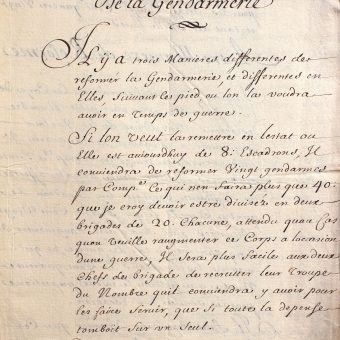 De la Gendarmerie
Il y a trois Manieres differentes de
reformer la Gendarmerie, et differentes en
Elles, Suivant les pied, ou lon la voudra
avoir en Temps de guerre.
Si lon veut la remettre en lestat ou
Elle est aujourdhuy de 8: Escadrons, Il
conviendra de reformer Vingt gendarmes
par Compe. Ce qui n'en faira plus que 40.
que je croy devoir estre divisez en deux
brigades de 20. Chacune, attendu quau Cas
quon Veuille raugmenter ce Corps a locasion
dune guerre, Il Sera plus facile aux deux
Chefs de brigade de recruter leur Troupe
du Nombre quil conviendra y avoir pour
les faire Servir, que Si toute la depense
tomboit Sur un Seul.